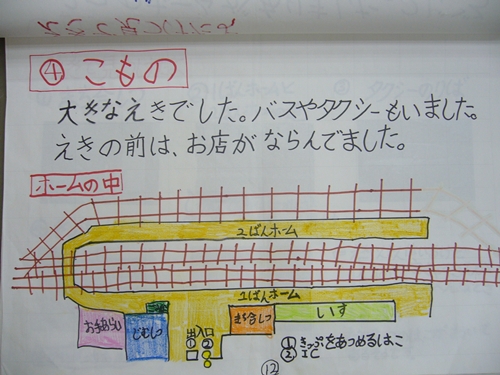 ④ こもの
大きなえきでした。バスやタクシーもいました。
えきの前は、お店がならんでました。
ホームの中
2ばんホーム
1ばんホーム
お手あらい
じむしつ
出入口
① ②
まち合しつ
いす
① きっぷをあつめるはこ
② IC
⑫